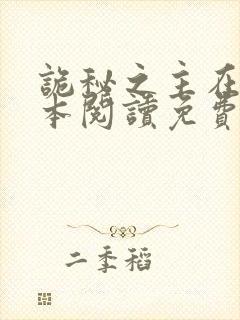 詭秘之主在
本閱讀免費
二季稻